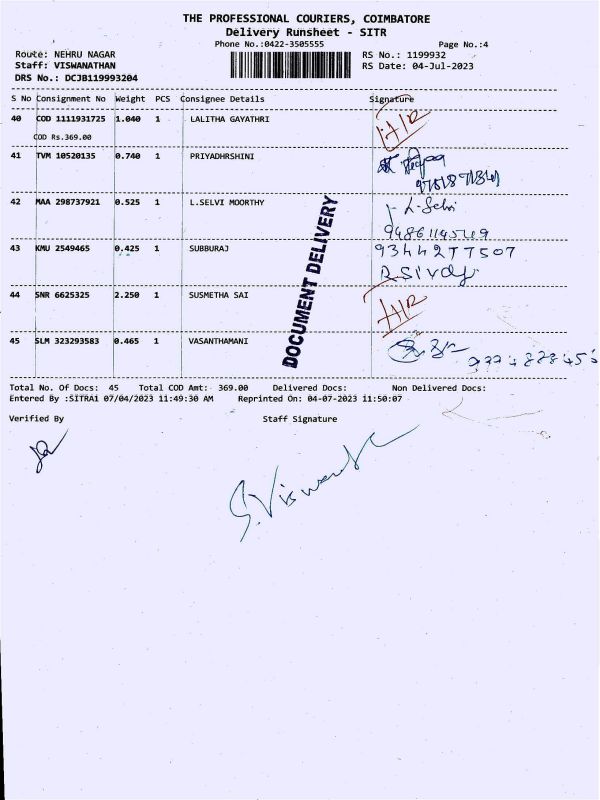 THE PROFESSIONAL COURIERS, COIMBATORE
Delivery Runsheet - SITR
Phone No.:0422-3505555 Page No.:4
Route: NEHRU NAGAR RS No.: 1199932
Staff: VISWANATHAN RS Date: 04-Jul-2023
DRS No.: DCJB119993204
S No Consignment No Weight PCS Consignee Details Signature
40 COD 1111931725 1.040 1 LALITHA GAYATHRI
COD Rs.369.00
41 TVM 10520135 0.740 1 PRIYADHRSHINI
42 MAA 298737921 0.525 1 L.SELVI MOORTHY L.Selvi
9486114549
43 KMU 2549465 0.425 1 SUBBURAJ 9344277507
44 SNR 6625325 2.250 1 SUSMETHA SAI
45 SLM 323293583 0.465 1 VASANTHAMANI
DOCUMENT DELIVERY
Total No. Of Docs: 45 Total COD Amt: 369.00 Delivered Docs: Non Delivered Docs:
Entered By :SITRAi 07/04/2023 11:49:30 AM Reprinted On: 04-07-2023 11:50:07
Verified By Staff Signature